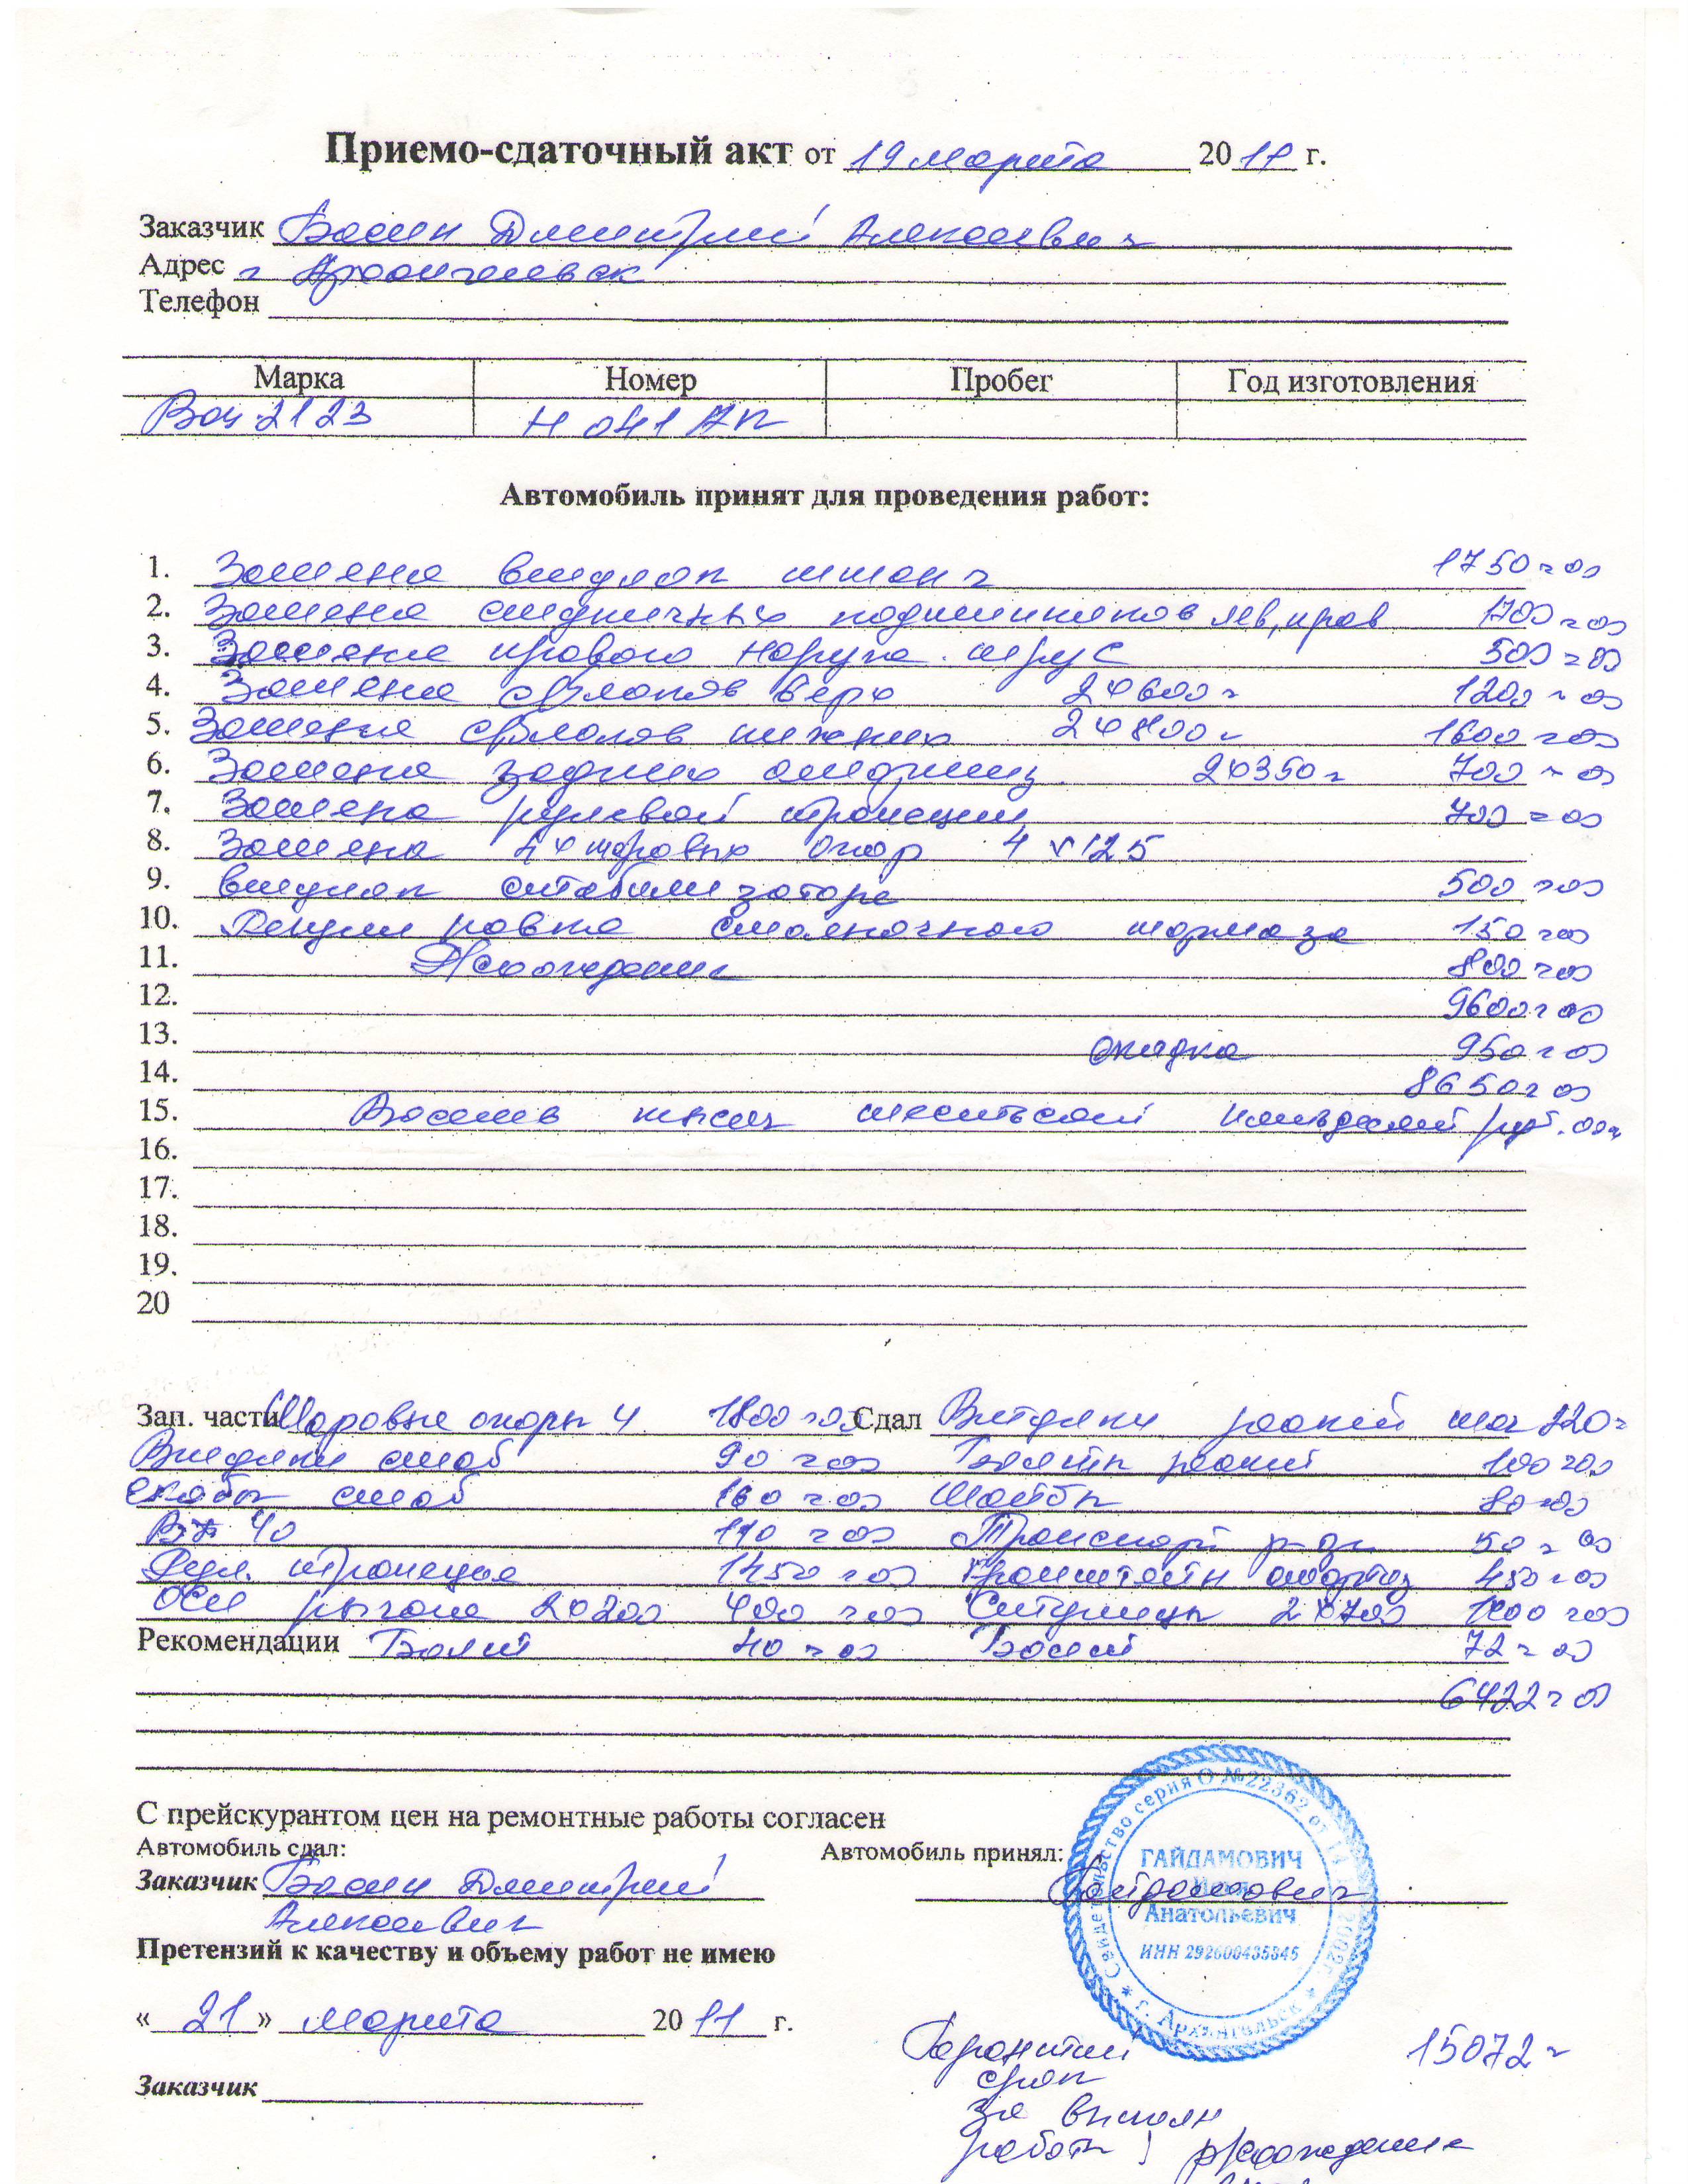 Приемо-сдаточный акт от 19 марта 2011 г.
Заказчик Басин Дмитрий Алексеевич
Адрес г Архангельск
Телефон
Марка Номер Пробег Год изготовления
Ваз 2123 Н 041 АК
Автомобиль принят для проведения работ:
1. Замена втулок штанг 1750 = 00
2. Замена ступичных подшипников лев, прав 1700 = 00
3. Замена правого наружн. шруС 500 = 00
4. Замена с/блоков верх 2х600= 1200 = 00
5. Замена с/блоков нижних 2х800= 1600 = 00
6. Замена задних амортиз. 2х350= 700 = 00
7. Замена рулевой трапеции 700 = 00
8. Замена 4х шаровых опор 4 х 125
9. втулок стабилизатора 500 = 00
10. Регулировка стояночного тормаза 150 = 00
11. Схождение 800 = 00
12. 9600 = 00
13. скидка 950 = 00
14. 8650 = 00
15. Восемь тысяч шестьсот пятьдесят руб. 00к
16.
17.
18.
19.
20
Зап. части Шаровые опоры 4 1800 = 00 Сдал Втулки реакт штг 720=
Втулки стаб 90 = 00 Болты реакт 100 = 00
Скобы стаб 160 = 00 Шайбы 80 = 00
110 = 00 50 = 00
Рул. трапеция 1450 = 00 Кронштейн амортиз 450 = 00
Оси рычага 2х200 400 = 00 Ступицы 2х700 = 00
Рекомендации Болт 40 = 00 Болт 72 = 00
6422 = 00
С прейскурантом цен на ремонтные работы согласен
Автомобиль сдал: Автомобиль принял:
Заказчик Басин Дмитрий Гайдамович
Алексеевич
Претензий к качеству и объему работ не имею
« 21 » марта 2011 г.
Заказчик
Свидетельство серия О №22362 от 2002г. * г. Архангельск *
ГАЙДАМОВИЧ
Анатольевич
ИНН 292600435345
Гарантий 15072=
срок
за выполн
работы схождение